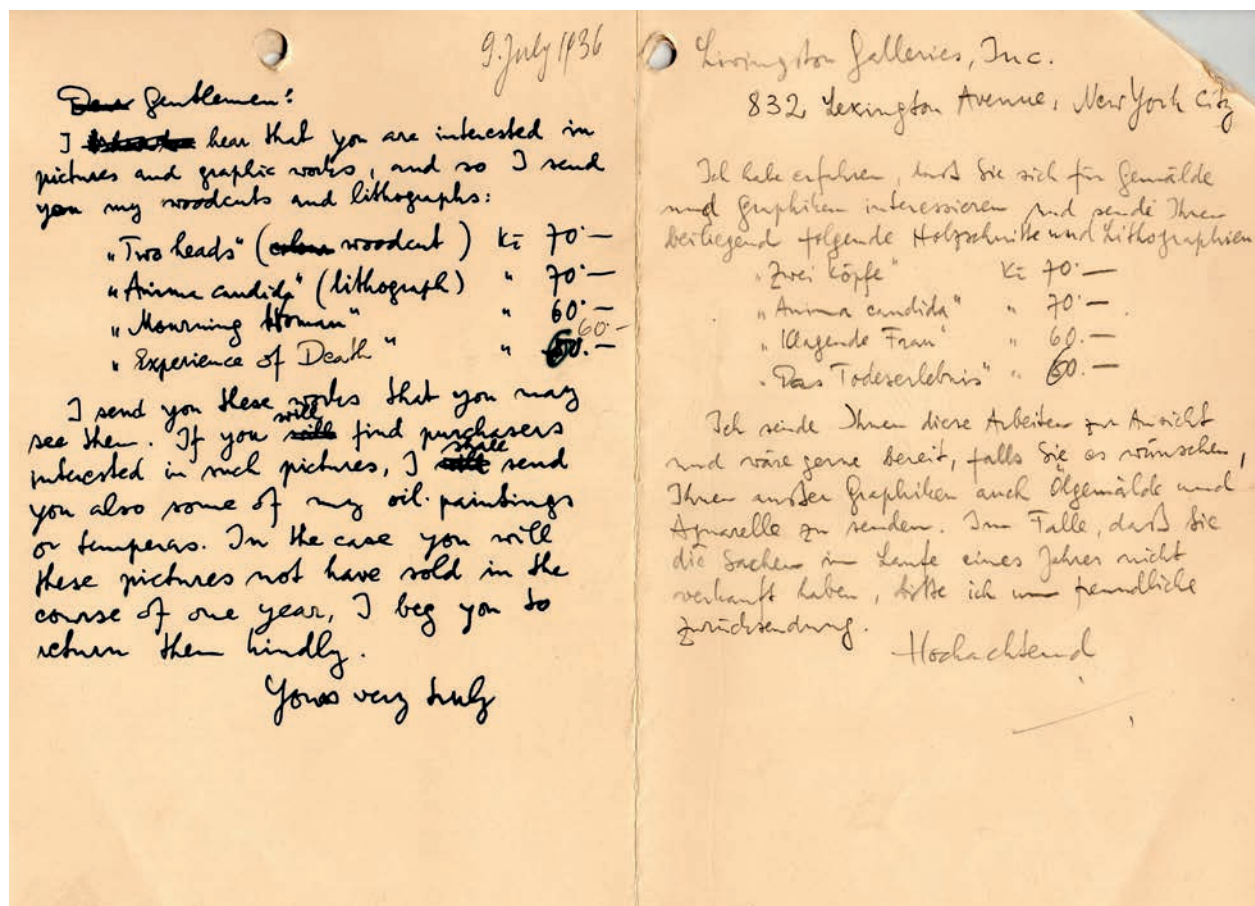 9. July 1936
Dear Gentlemen!
I hear that you are interested in
pictures and graphic works, and so I send
you my woodcuts and lithographs:
„Two heads“ (colour woodcut) Kč 70·—
„Anima candida“ (lithograph) " 70·—
„Mourning Woman“ " 60·—
60·—
„Experience of Death“ " 60.—
I send you these works that you may
will
see them. If you will find purchasers
shall
interested in such pictures, I will send
you also some of my oil-paintings
or temperas. In the case you will
these pictures not have sold in the
course of one year, I beg you to
return them kindly.
Yours very truly
Livingston Galleries, Inc.
832 Lexington Avenue, New York City
Ich habe erfahren, daß Sie sich für Gemälde
und Graphiken interessieren und sende Ihnen
beiliegend folgende Holzschnitte und Lithographien
„Zwei Köpfe“ Kč 70·—
„Anima candida“ " 70.—
„Klagende Frau“ " 60.—
„Das Todeserlebnis“ " 60.—
Ich sende Ihnen diese Arbeiten zur Ansicht
und wäre gerne bereit, falls Sie es wünschen,
Ihnen außer Graphiken auch Ölgemälde und
Aquarelle zu senden. Im Falle, daß Sie
die Sachen im Laufe eines Jahres nicht
verkauft haben, bitte ich um freundliche
Zurücksendung.
Hochachtend